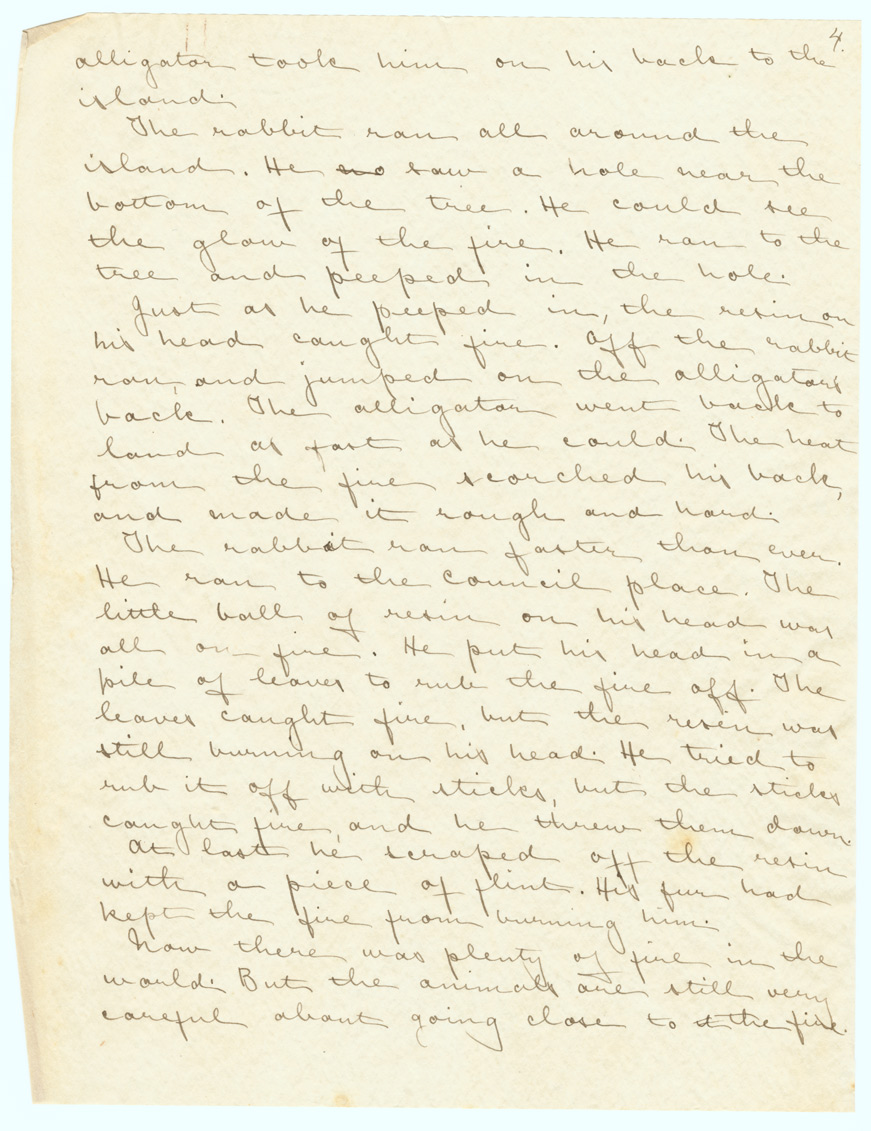 4.
alligator took him on his back to the
island.
The rabbit ran all around the
island. He no saw a hole near the
bottom of the tree. He could see
the glow of the fire. He ran to the
tree and peeped in the hole.
Just as he peeped in, the resin on
his head caught fire. Off the rabbit
ran, and jumped on the alligator's
back. The alligator went back to
land as fast as he could. The heat
from the fire scorched his back,
and made it rough and hard.
The rabbit ran faster than ever.
He ran to the council place. The
little ball of resin on his head was
all on fire. He put his head in a
pile of leaves to rub the fire off. The
leaves caught fire, but the resin was
still burning on his head. He tried to
rub it off with sticks, but the sticks
caught fire, and he threw them down.
At last he scraped off the resin
with a piece of flint. His fur had
kept the fire from burning him.
Now there was plenty of fire in the
world. But the animals are still very
careful about going close to the fire.